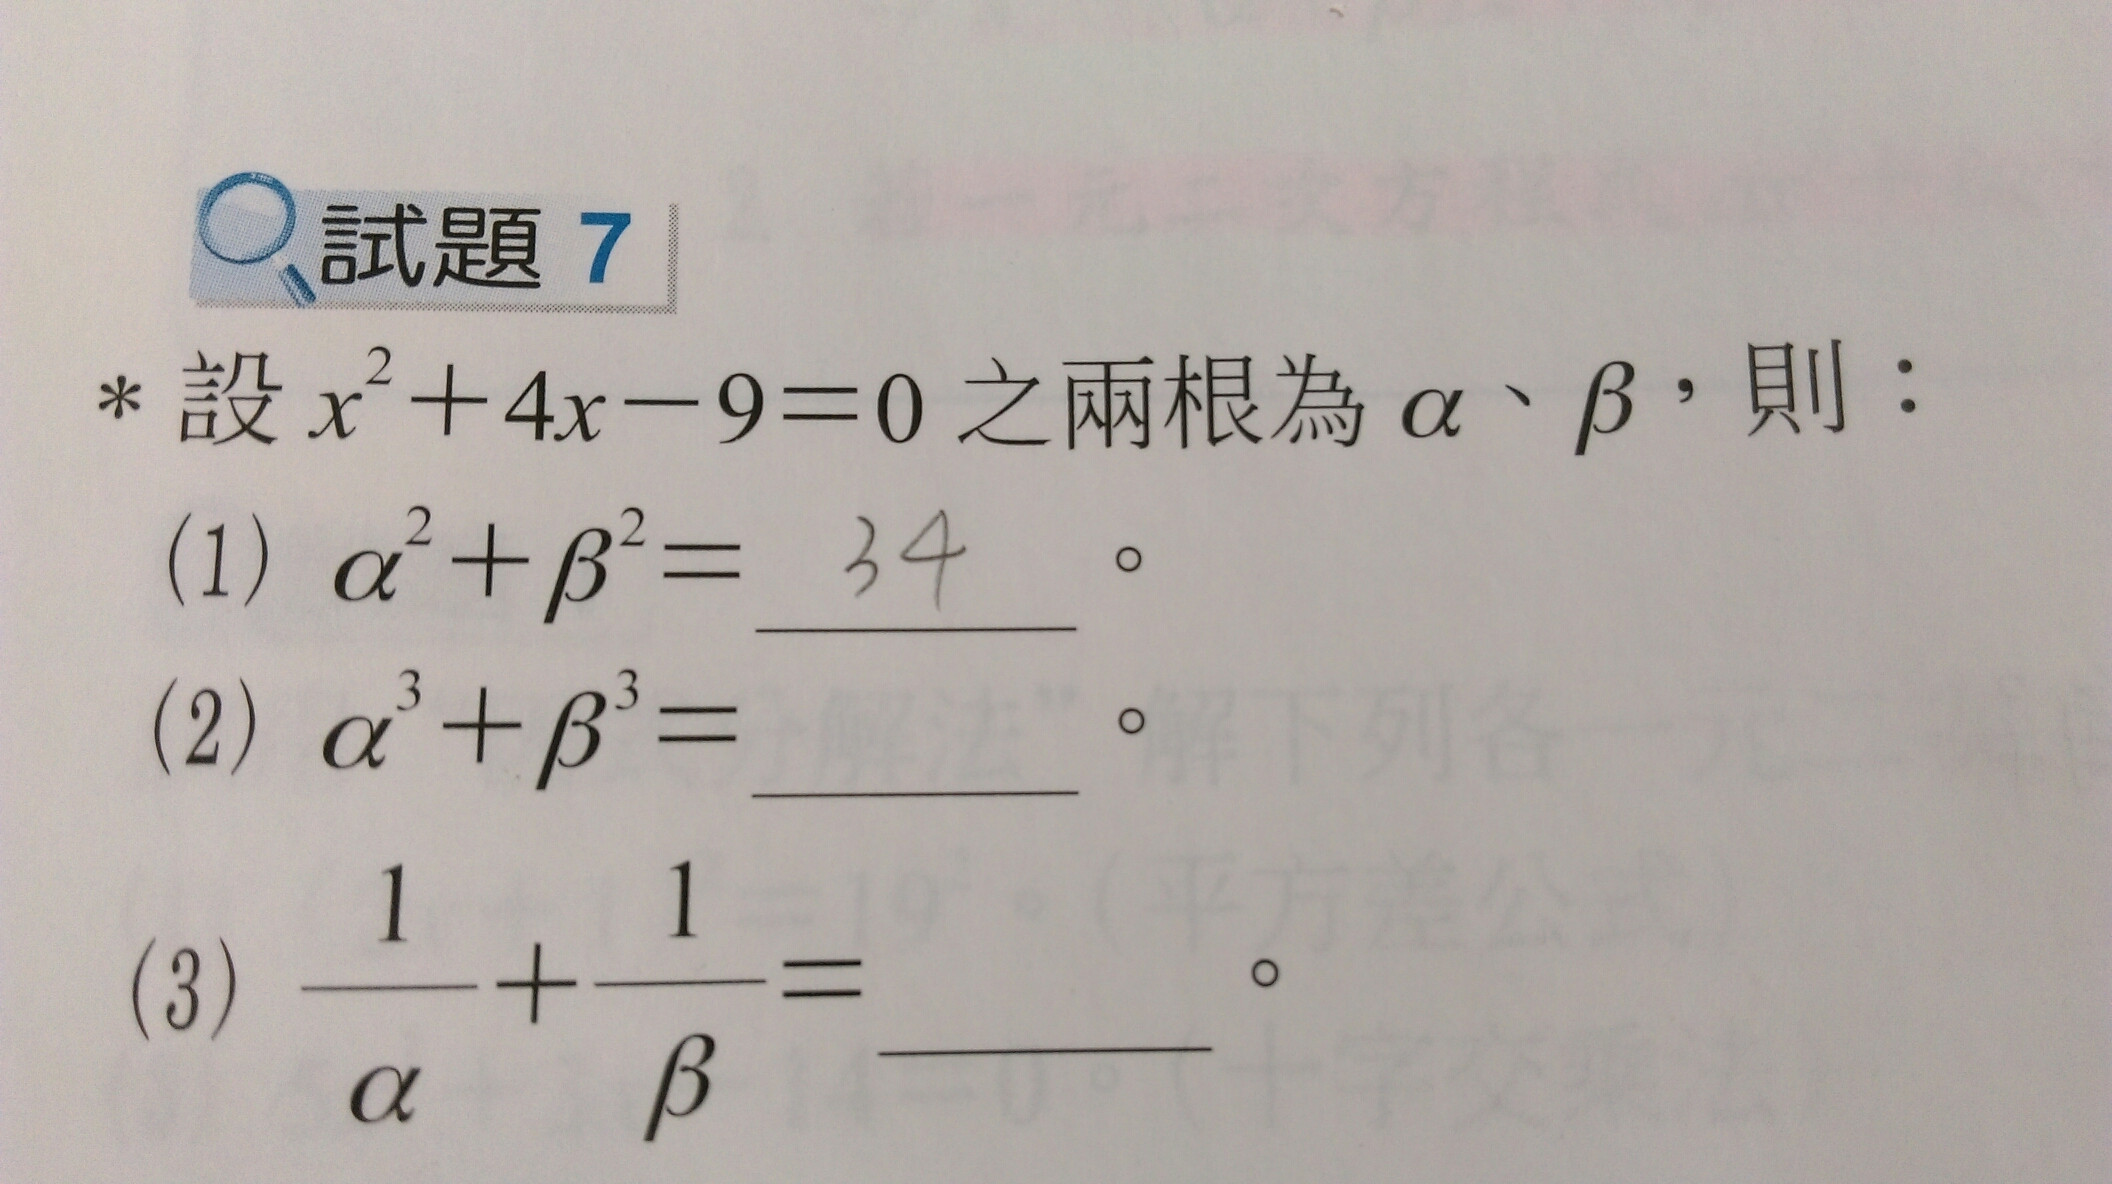 試題 7
* 設 x²+4x-9=0 之兩根為 α、β，則：
(1) α²+β²= 34 。
(2) α³+β³=______。
(3) 1/α + 1/β =______。